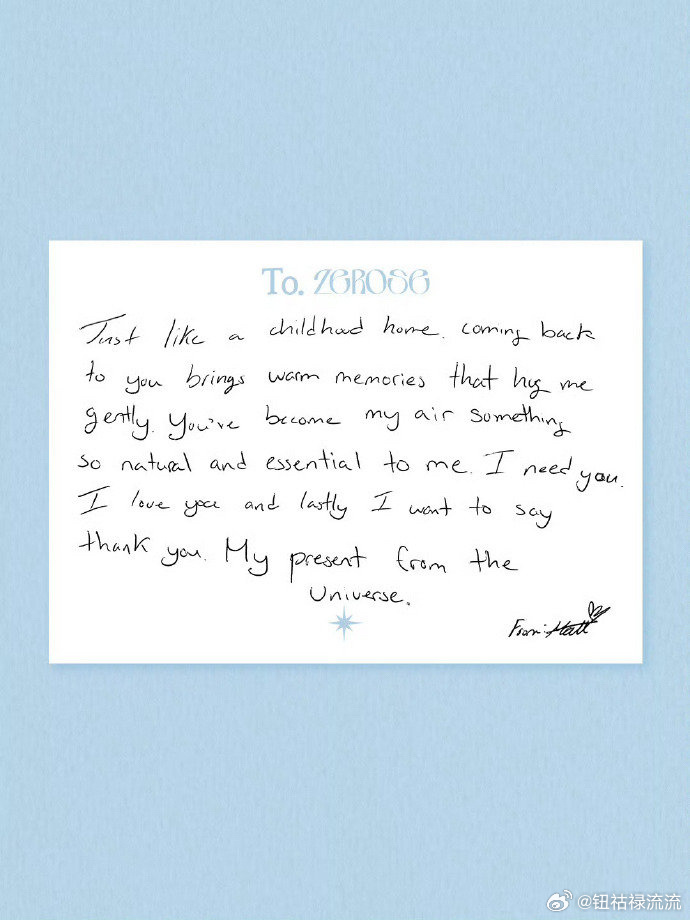 To. ZEROSE
Just like a childhood home. coming back
to you brings warm memories that hug me
gently. You've become my air something
so natural and essential to me. I need you.
I love you and lastly I want to say
thank you. My present from the
Universe.
From: Matt
@钮祜禄流流